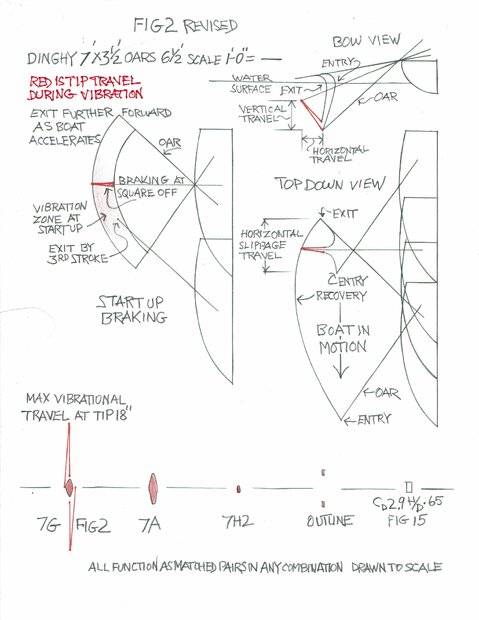 FIG2 REVISED
DINGHY 7'X3½' OARS 6½' SCALE 1'-0"= —
RED IS TIP TRAVEL
DURING VIBRATION
EXIT FURTHER FORWARD
AS BOAT
ACCELERATES
OAR
BRAKING AT
SQUARE OFF
VIBRATION
ZONE AT
START UP
EXIT BY
3RD STROKE
START UP
BRAKING
BOW VIEW
ENTRY
WATER
SURFACE
EXIT
VERTICAL
TRAVEL
OAR
HORIZONTAL
TRAVEL
TOP DOWN VIEW
EXIT
HORIZONTAL
SLIPPAGE
TRAVEL
ENTRY
RECOVERY
BOAT IN
MOTION
OAR
ENTRY
MAX VIBRATIONAL
TRAVEL AT TIP 18"
7G
FIG2
7A
7H2
OUTLINE
CD2.9 H/D .65
FIG 15
ALL FUNCTION AS MATCHED PAIRS IN ANY COMBINATION DRAWN TO SCALE